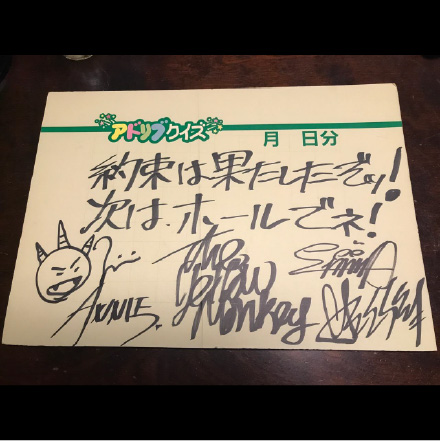 アドリブクイズ
月 日分
約束は果たしたぞッ!
次は、ホールでネ!
ANNIE
The Yellow Monkey
EMMA